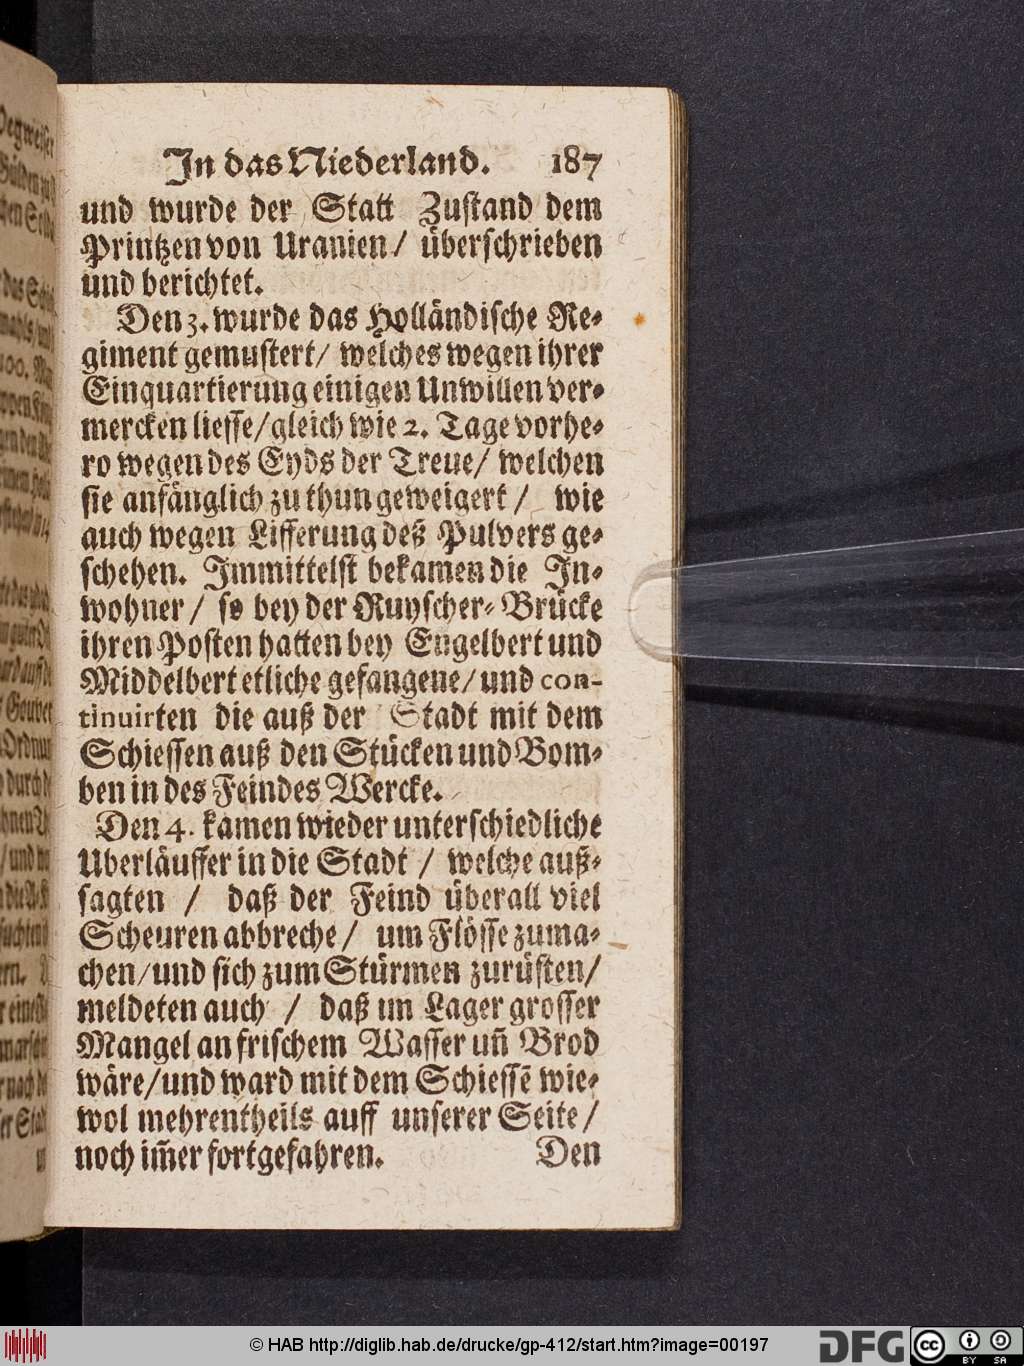 In das Niederland. 187
und wurde der Statt Zustand dem
Printzen von Uranien/ überschrieben
und berichtet.
Den 3. wurde das Holländische Re-
giment gemustert/ welches wegen ihrer
Einquartierung einigen Unwillen ver-
mercken liesse/gleich wie 2. Tage vorhe-
ro wegen des Eyds der Treue/ welchen
sie anfänglich zu thun geweigert / wie
auch wegen Lifferung deß Pulvers ge-
schehen. Immittelst bekamen die In-
wohner / so bey der Ruyscher-Brücke
ihren Posten hatten bey Engelbert und
Middelbert etliche gefangene/ und con-
tinuirten die auß der Stadt mit dem
Schiessen auß den Stücken und Bom-
ben in des Feindes Wercke.
Den 4. kamen wieder unterschiedliche
Uberläuffer in die Stadt / welche auß-
sagten / daß der Feind überall viel
Scheuren abbreche / um Flösse zuma-
chen/und sich zum Stürmen zurüsten/
meldeten auch / daß im Lager grosser
Mangel an frischem Wasser uñ Brod
wäre/und ward mit dem Schiessē wie-
wol mehrentheils auff unserer Seite /
noch im̃er fortgefahren. Den
© HAB http://diglib.hab.de/drucke/gp-412/start.htm?image=00197
DFG
cc BY SA